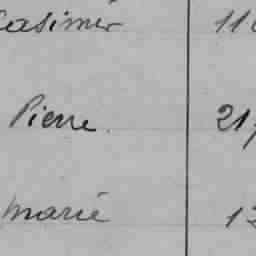 Casimir 110
Pierre 217
Marie 12